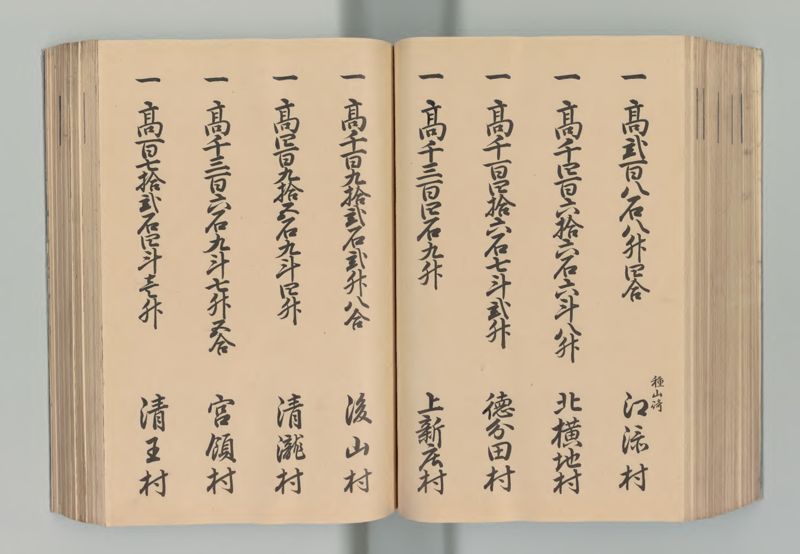 一 髙弐百八石八升四合 種山 江添村
一 髙千四百六拾六石六斗八升 北横地村
一 髙千百四拾六石七斗弐升 徳分田村
一 髙千三百四石九升 上新庄村
一 髙千百九拾弐石弐升八合 後山村
一 髙四百九拾五石九斗四升 清瀧村
一 髙千三百六石九斗七升五合 宮領村
一 髙百七拾弐石四斗壱升 清王村